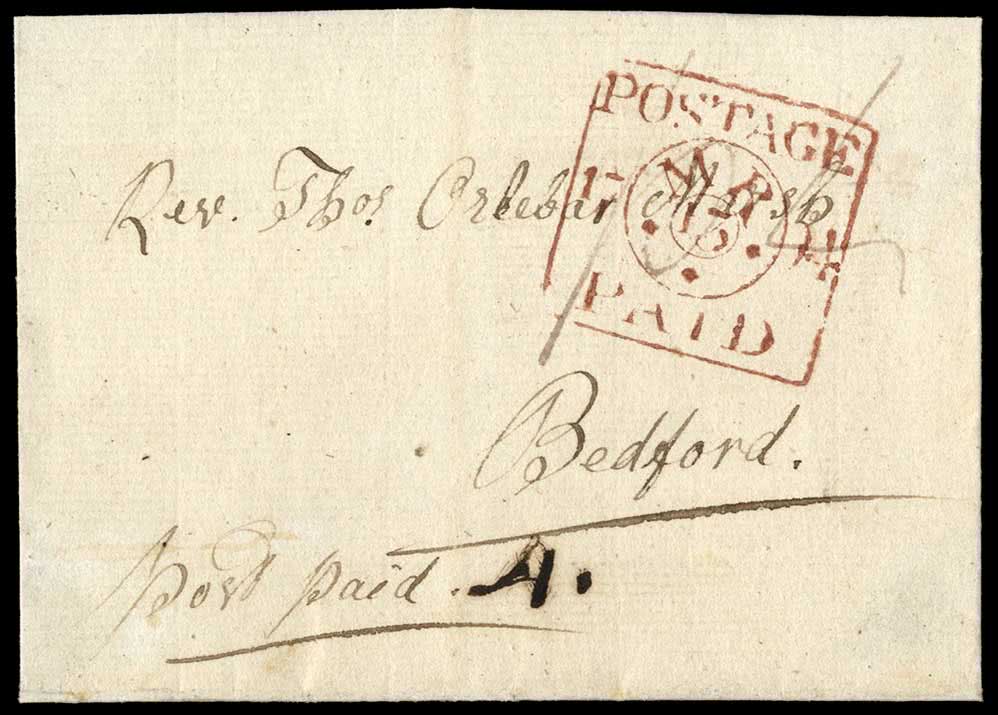 POSTAGE
MR
13
PAID
Rev. Thos Orlebar Marsh
Bedford.
Post paid. 4.